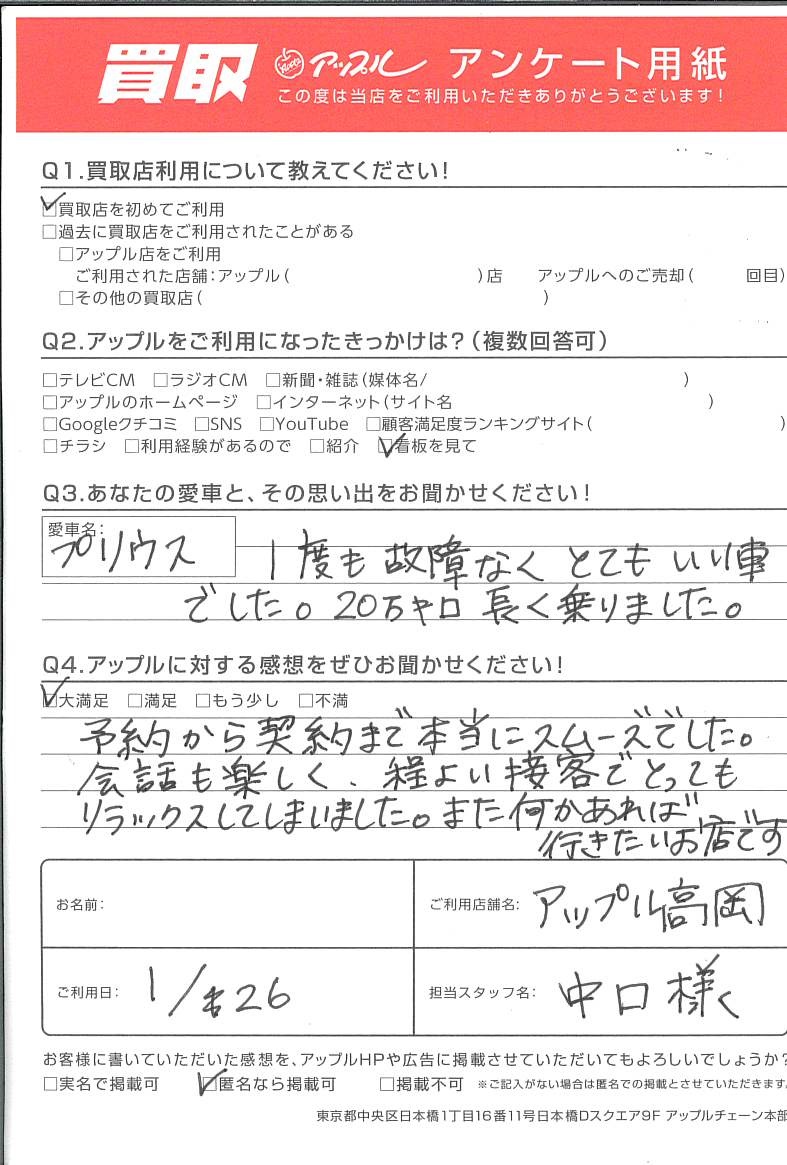 買取 アップル アンケート用紙
この度は当店をご利用いただきありがとうございます!
Q1.買取店利用について教えてください!
☑買取店を初めてご利用
□過去に買取店をご利用されたことがある
□アップル店をご利用
ご利用された店舗:アップル( )店 アップルへのご売却( 回目)
□その他の買取店( )
Q2.アップルをご利用になったきっかけは?(複数回答可)
□テレビCM □ラジオCM □新聞・雑誌(媒体名/ )
□アップルのホームページ □インターネット(サイト名 )
□Googleクチコミ □SNS □YouTube □顧客満足度ランキングサイト( )
□チラシ □利用経験があるので □紹介 ☑看板を見て
Q3.あなたの愛車と、その思い出をお聞かせください!
愛車名:
プリウス 1度も故障なくとてもいい車
でした。20万キロ長く乗りました。
Q4.アップルに対する感想をぜひお聞かせください!
☑大満足 □満足 □もう少し □不満
予約から契約まで本当にスムーズでした。
会話も楽しく、程よい接客でとっても
リラックスしてしまいました。また何かあれば
行きたいお店です
お名前: ご利用店舗名: アップル高岡
ご利用日: 1/26 担当スタッフ名: 中口様
お客様に書いていただいた感想を、アップルHPや広告に掲載させていただいてもよろしいでしょうか?
□実名で掲載可 ☑匿名なら掲載可 □掲載不可 ※ご記入がない場合は匿名での掲載とさせていただきます。
東京都中央区日本橋1丁目16番11号日本橋Dスクエア9F アップルチェーン本部